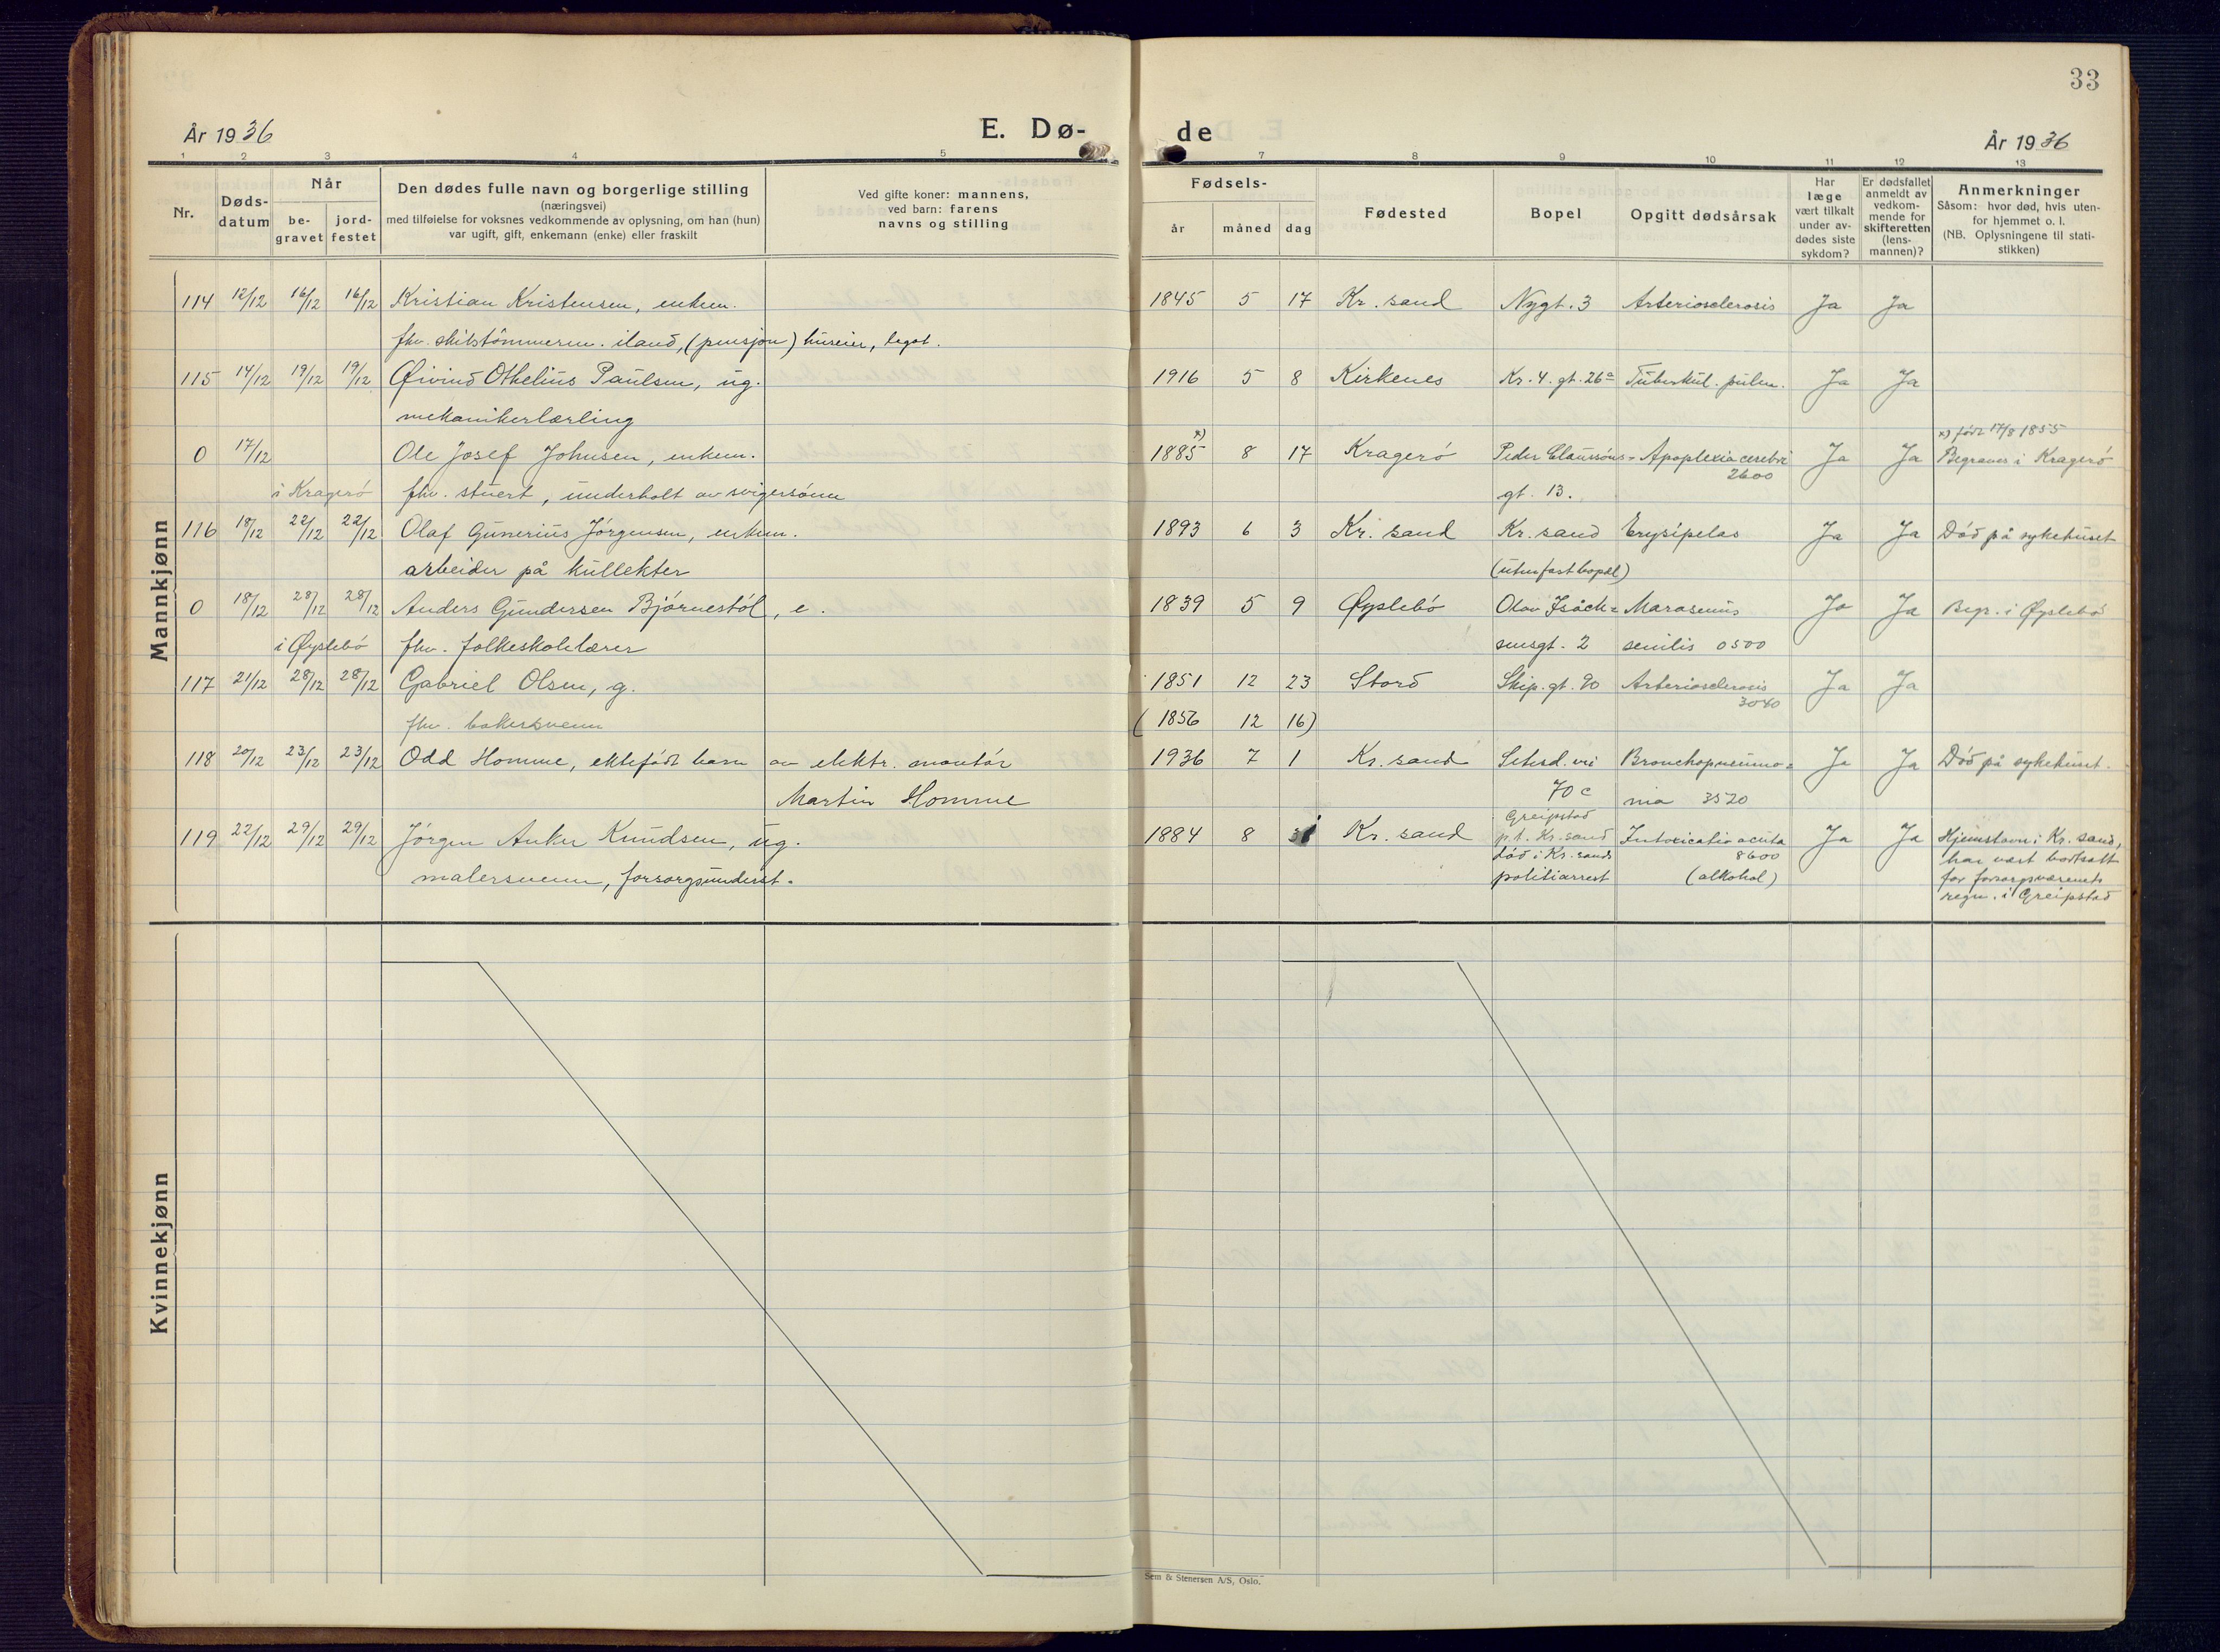 33
År 1936
E. Dø-
de
År 1936
1 2 3 4 5 7 8 9 10 11 12 13
Nr.
Døds-
datum
Når
be-
gravet
jord-
festet
Den dødes fulle navn og borgerlige stilling
(næringsvei)
med tilføielse for voksnes vedkommende av oplysning, om han (hun)
var ugift, gift, enkemann (enke) eller fraskilt
Ved gifte koner: mannens,
ved barn: farens
navns og stilling
Fødsels-
år måned dag
Fødested
Bopel
Opgitt dødsårsak
Har
læge
vært tilkalt
under av-
dødes siste
sykdom?
Er dødsfallet
anmeldt av
vedkom-
mende for
skifteretten
(lens-
mannen)?
Anmerkninger
Såsom: hvor død, hvis uten-
for hjemmet o. l.
(NB. Oplysningene til stati-
stikken)
Mannkjønn
114 12/12 16/12 16/12 Kristian Kristensen, enkem. 1845 5 17 Kr. sand Nygt. 3 Arteriosclerosis Ja Ja
fhv. iland, (pensjon) huseier, legat.
115 14/12 19/12 19/12 Øivind Othelius Paulsen, ug. 1916 5 8 Kirkenes Kr. 4. gt. 26a Tuberkul. pulm. Ja Ja
mekanikerlærling
x) født 17/8 1855
0 17/12 Ole Josef Johnsen, enkem. 1885 x) 8 17 Kragerö Peder Claussöns- Apoplexia cerebri Ja Ja Begraves i Kragerö
2600
i Kragerö fhv. stuert, underholt av svigersönn gt. 13.
116 18/12 22/12 22/12 Olaf Gunerius Jörgensen, enkem. 1893 6 3 Kr. sand Kr. sand Erysipelas Ja Ja Död på sykehuset
arbeider på kullekter (uten fast bopel)
0 18/12 28/12 28/12 Anders Gundersen Björnestöl, e. 1839 5 9 Øyslebö Olav Isäck= Marasmus Ja Ja Begr. i Øyslebö
i Øyslebö fhv. folkeskolelærer sensgt. 2 senilis 0500
117 21/12 28/12 28/12 Gabriel Olsen, g. 1851 12 23 Stord Skip. gt. 90 Arteriosclerosis Ja Ja
3040
fhv. bakersvenn (1856 12 16)
118 20/12 23/12 23/12 Odd Homme, ektefödt barn av elektr. montör 1936 7 1 Kr. sand Setesd. vei Bronchopneumo= Ja Ja Död på sykehuset.
Martin Homme 70 c nia 3520
Greipstad
119 22/12 29/12 29/12 Jörgen Anker Knudsen, ug. 1884 8 31 Kr. sand p.t. Kr. sand Intoxicatio acuta Ja Ja Hjemstavn i Kr. sand,
död i Kr. sands 8600 har vært bortsatt
malersvenn, forsorgsunderst. politiarrest (alkohol) for forsorgsvæsenets
regn. i Greipstad
Kvinnekjønn
Sem & Stenersen A/S, Oslo.